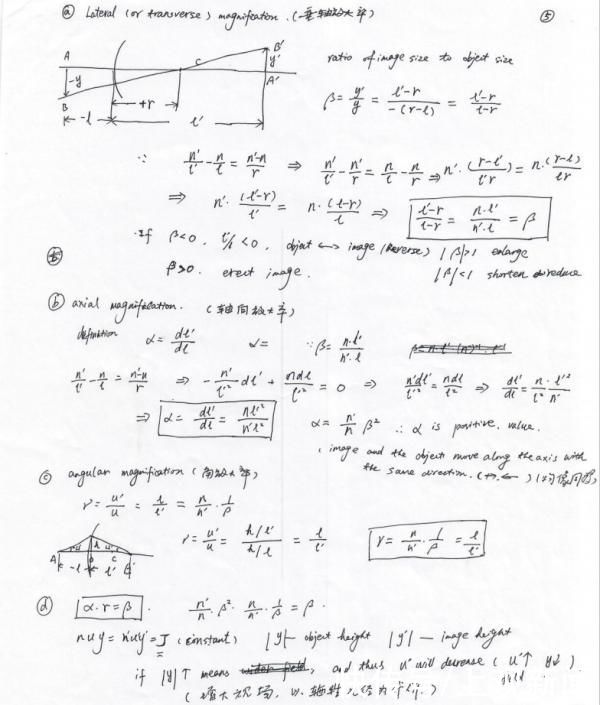 ⓐ Lateral (or transverse) magnification. (垂轴放大率)
⑤
A C B' y' A' -y B -l +r l'
ratio of image size to object size
β = y'/y = (l'-r)/(-(r-l)) = (l'-r)/(l-r)
∵ n'/l' - n/l = (n'-n)/r ⇒ n'/l' - n'/r = n/l - n/r ⇒ n'·(r-l')/(l'r) = n·(r-l)/(lr)
⇒ n'·(l'-r)/l' = n·(l-r)/l ⇒ (l'-r)/(l-r) = n·l'/(n'·l) = β
If β<0, l'/l<0, object ↔ image (Reverse) |β|>1 enlarge
β>0. erect image. |β|<1 shorten or reduce
ⓑ axial magnification. (轴向放大率)
definition α = dl'/dl α = ∵ β = n·l'/(n'·l)
n'/l' - n/l = (n'-n)/r ⇒ -n'/l'² dl' + ndl/l² = 0 ⇒ n'dl'/l'² = ndl/l² ⇒ dl'/dl = n·l'²/(l² n')
⇒ α = dl'/dl = nl'²/(n'l²) α = n'/n β² ∴ α is positive value.
(image and the object move along the axis with
the same direction. (→, ←)
ⓒ angular magnification (角放大率)
γ = u'/u = l/l' = n/n' · 1/β
A -l h O l' C B'
γ = u'/u = (h/l')/(h/l) = l/l' γ = n/n' · 1/β = l/l'
ⓓ α·r = β. n'/n · β² · n/n' · 1/β = β.
nuy = n'u'y' = J (constant) |y| — object height |y'| — image height
if |y|↑ means, and thus u' will decrease (u'↑ y↓)